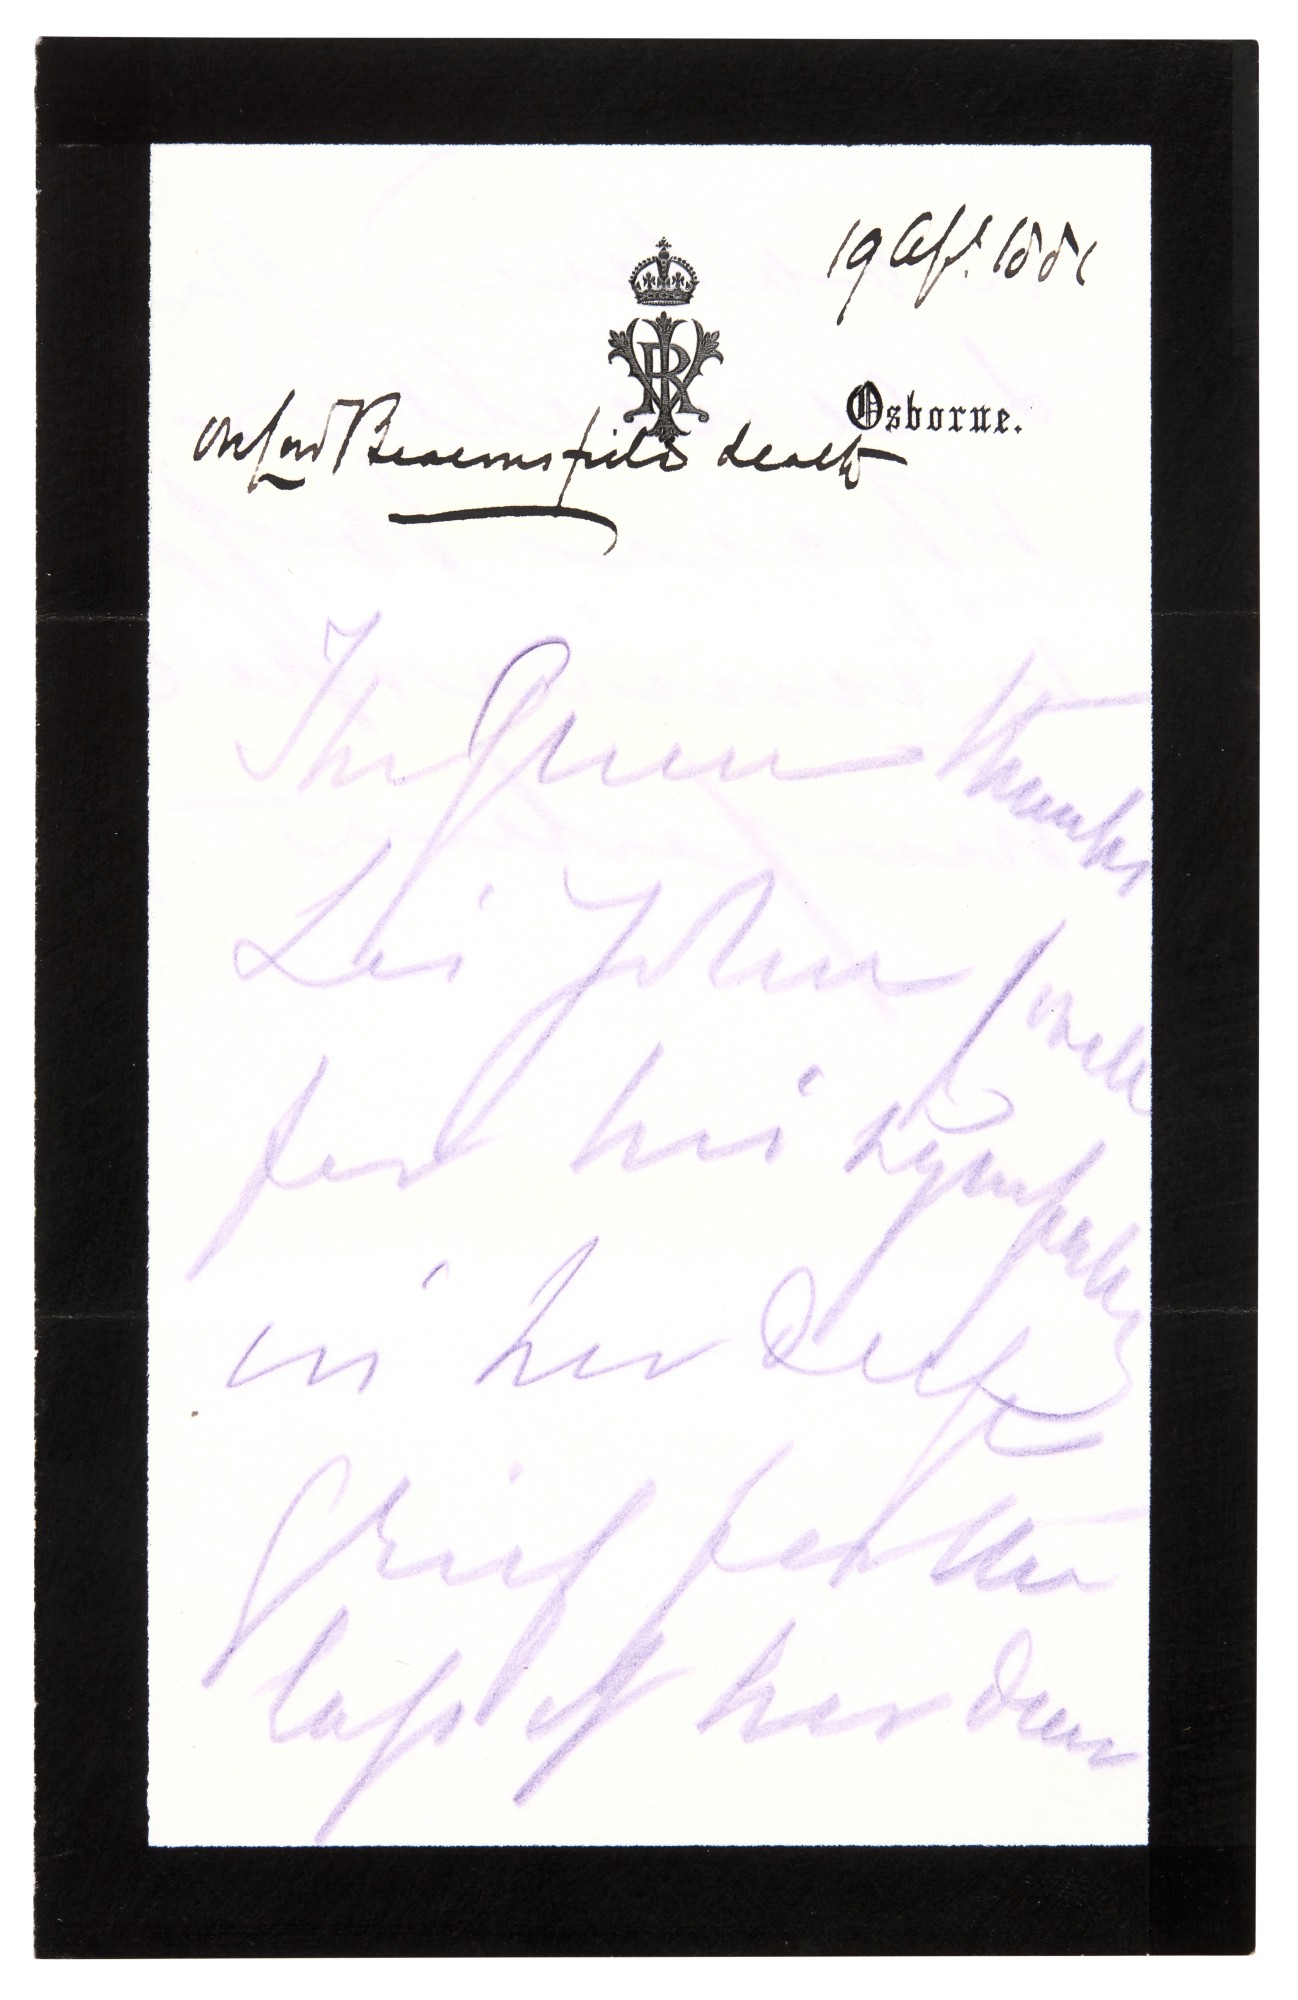 19 Apl. 1881
Osborne.
on Lord Beaconsfield's death
The Queen thanks
Sir John
for his sympathy
in her deep
grief for the
loss of her dear